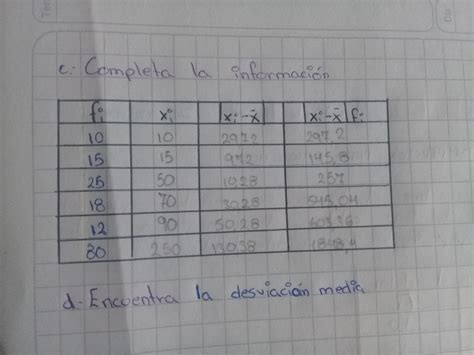 c.- Completa la información
fi xi |xi-x̄| |xi-x̄|fi
10 10 29.72 297.2
15 15 9.72 145.8
25 50 10.28 257
18 70 30.28 545.04
12 90 50.28 603.36
80 250 130.38 1848.4
d.- Encuentra la desviación media